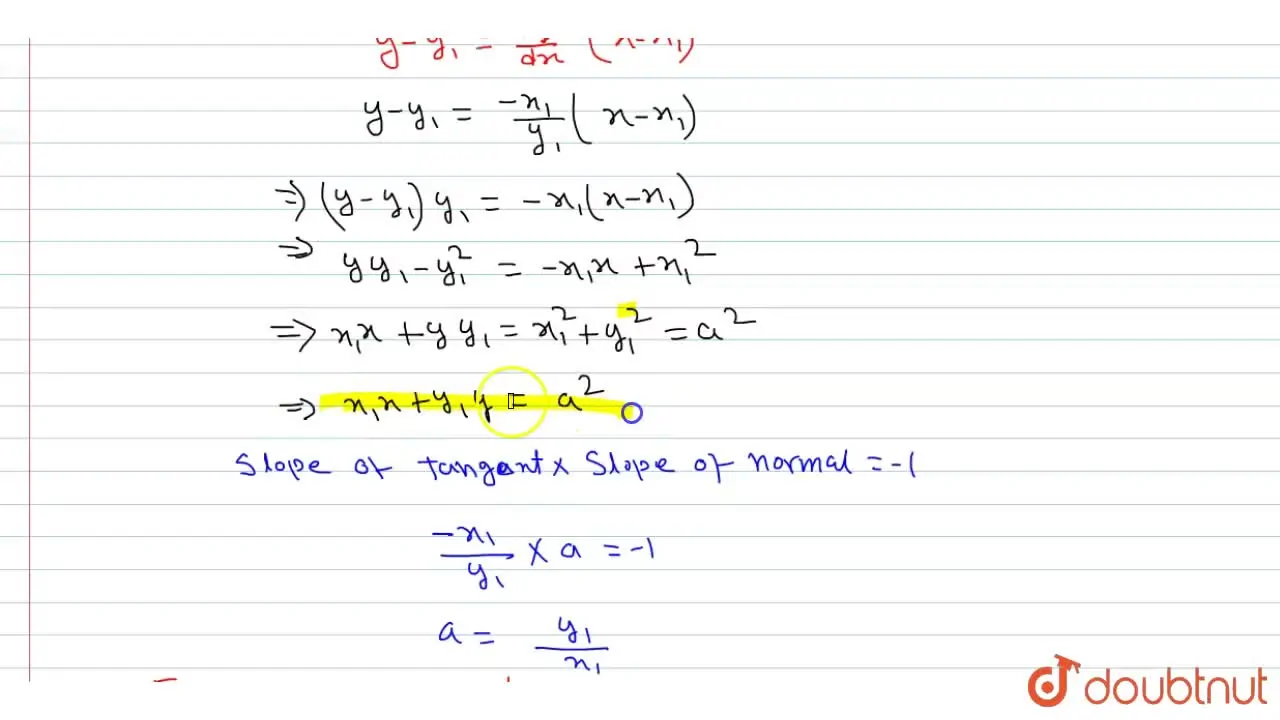 y - y₁ = dx (x - x₁)
y - y₁ = -x₁/y₁ (x - x₁)
⇒ (y - y₁) y₁ = -x₁(x - x₁)
⇒ yy₁ - y₁² = -x₁x + x₁²
⇒ x₁x + yy₁ = x₁² + y₁² = a²
⇒ x₁x + y₁y = a²
Slope of tangent × Slope of normal = -1
-x₁/y₁ × a = -1
a = y₁/x₁
doubtnut